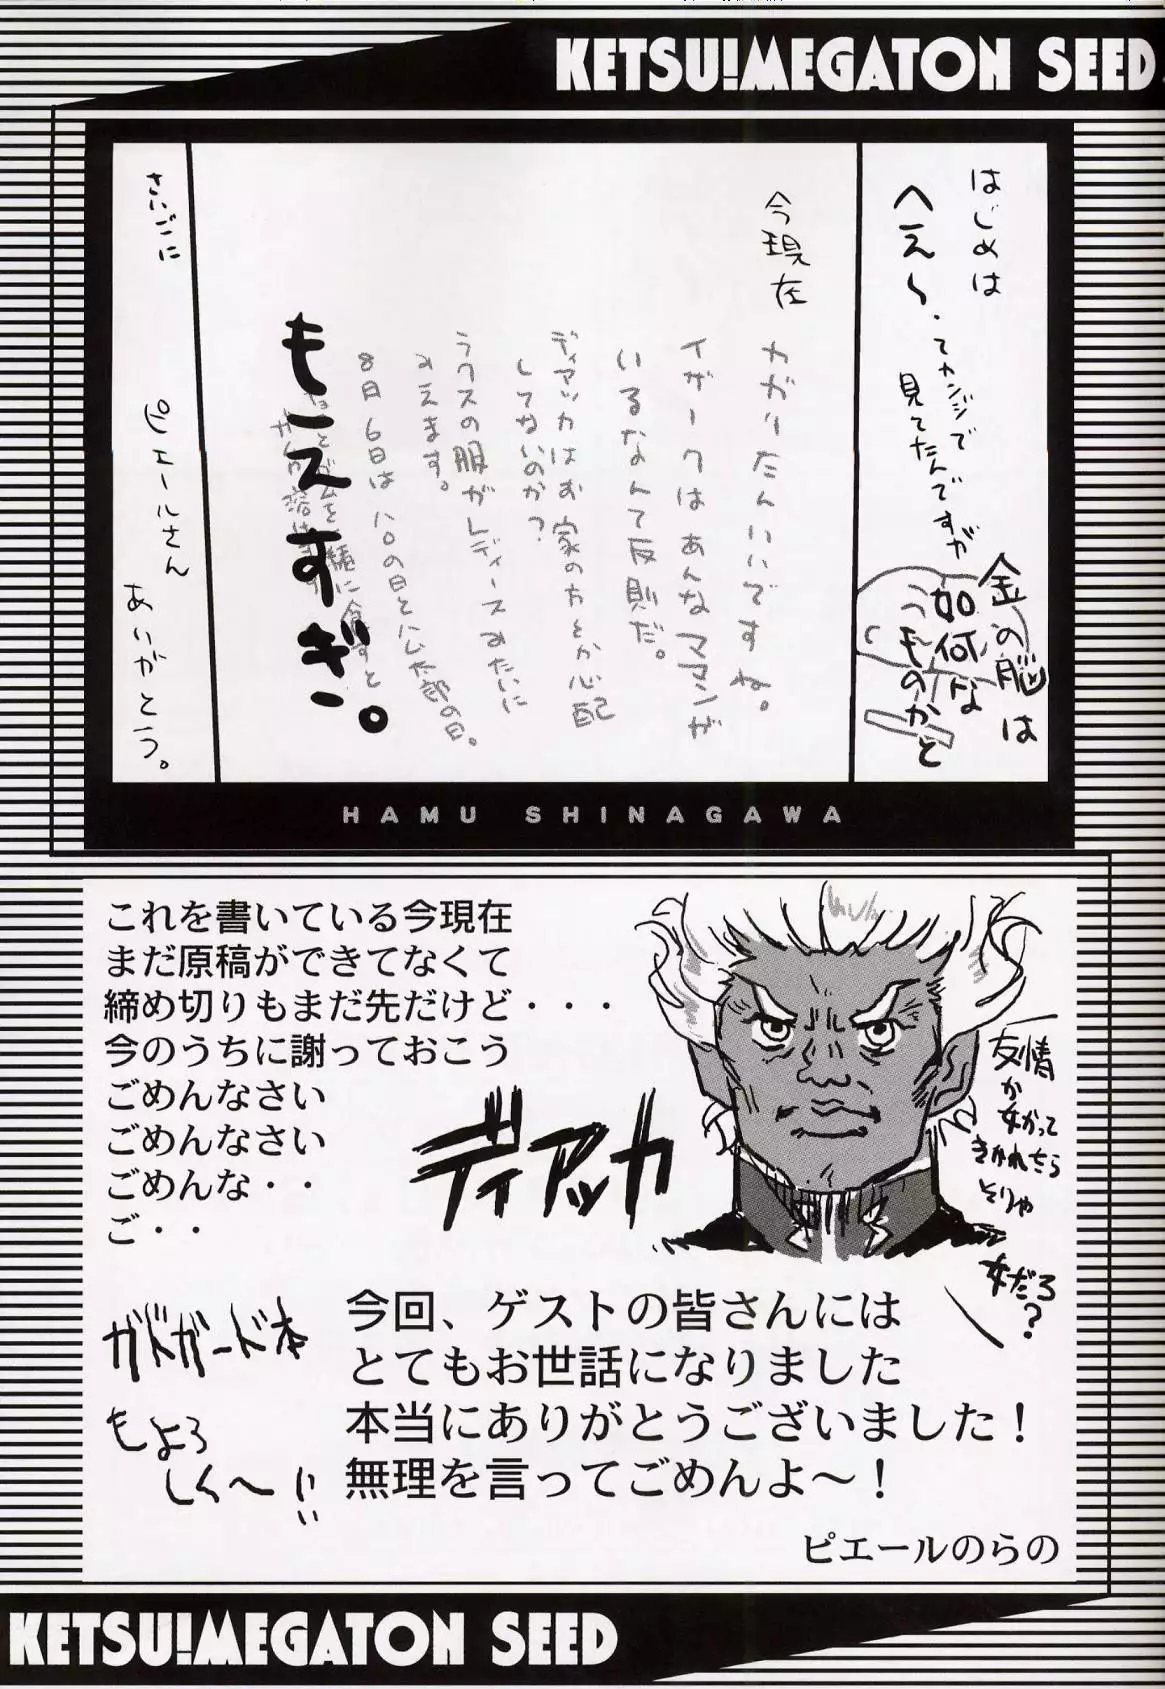 KETSU!MEGATON SEED
はじめは
へえ〜、てカンジで
見てたんですが
金の脳は
如何な
ものかと
今現在
カガリたんいいですね。
イザークはあんなママンが
いるなんて反則だ。
ディアッカはお家の方とか心配
してないのか?
ラクスの服がレディースみたいに
みえます。
8月6日はハムの日とハム太郎の日。
もえすぎ。
さいごに
ピエールさん
ありがとう。
HAMU SHINAGAWA
これを書いている今現在
まだ原稿ができてなくて
締め切りもまだ先だけど・・・
今のうちに謝っておこう
ごめんなさい
ごめんなさい
ごめんな・・
ご・・
ディアッカ
友情
か
女かって
きかれたら
そりゃ
女だろ
?
ガドガード本
もよろ
しく〜!!
今回、ゲストの皆さんには
とてもお世話になりました
本当にありがとうございました!
無理を言ってごめんよ〜!
ピエールのらの
KETSU!MEGATON SEED